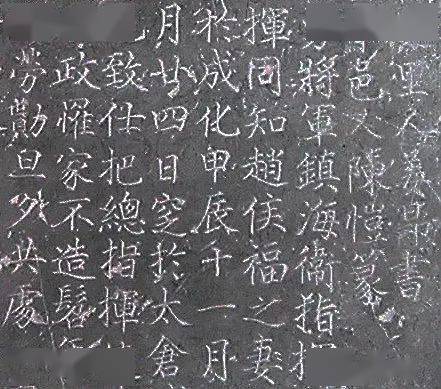 里人書
邑人陳愷篆
將軍鎮海衛指
揮同知趙侯福之妻
於成化甲辰十一月
月廿四日窆於太倉
致仕把總指揮
政家不造髫
勞勩旦夕共處